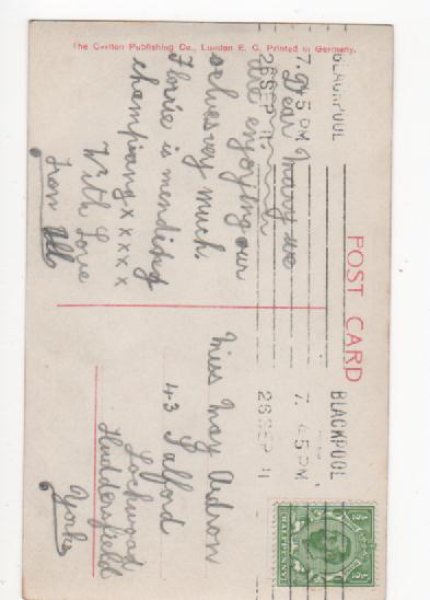 The Carlton Publishing Co., London E. C. Printed in Germany.
POST CARD
BLACKPOOL
7.45 PM
26 SEP 11
BLACKPOOL
7. 45 PM
26 SEP 11
Dear Mary we
are enjoying our
selves very much.
Florrie is mending
champiang x x x x x
With Love
from
Miss May
43 Salford
Lockwood
Huddersfield
Yorks
HALFPENNY